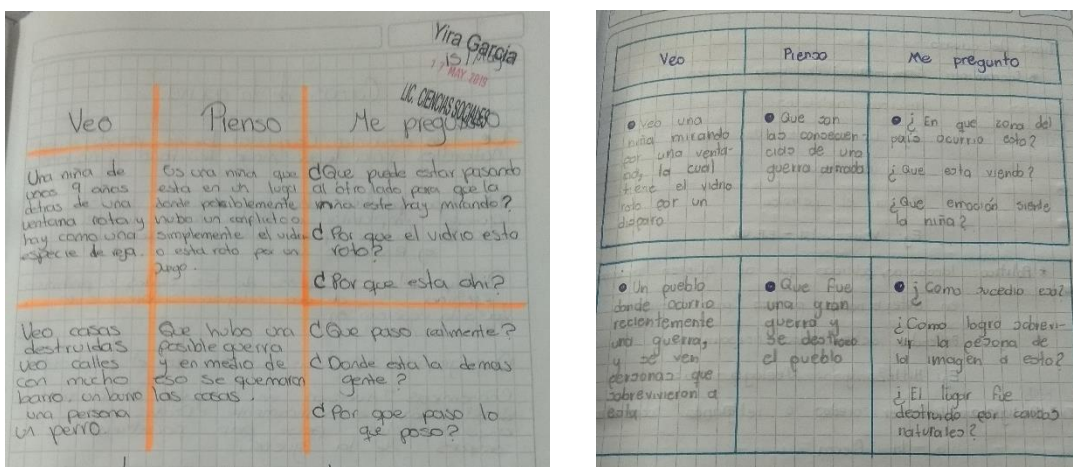 Yira García
17 MAY 2019
LIC. CIENCIAS SOCIALES
Veo
Pienso
Me pregunto
Una niña de
unos 9 años
detras de una
ventana rota y
hay como una
especie de reja.
Es una niña que
esta en un lugar
donde posiblemente
hubo un conflicto o
simplemente el vidri
o esta roto por un
juego.
¿Que puede estar pasando
al otro lado para que la
niña este hay mirando?
¿Por que el vidrio esta
roto?
¿Por que esta ahi?
Veo casas
destruidas
veo calles
con mucho
barro, un burro
una persona
un perro
Que hubo una
posible guerra
y en medio de
eso se quemaron
las casas.
¿Que paso realmente?
¿Donde esta la demas
gente?
¿Por que paso lo
que paso?
Veo
Pienso
Me pregunto
Veo una
niña mirando
por una venta-
na, la cual
tiene el vidrio
roto por un
disparo
Que son
las consecuen-
cias de una
guerra armada
¿En que zona del
país ocurrio esto?
¿Que esta viendo?
¿Que emoción siente
la niña?
Un pueblo
donde ocurrio
recientemente
una guerra,
y se ven
personas que
sobrevivieron a
esta
Que fue
una gran
guerra y
se destruyo
el pueblo
¿Como sucedio eso?
¿Como logro sobrevi-
vir la persona de
la imagen a esto?
¿El lugar fue
destruido por causas
naturales?